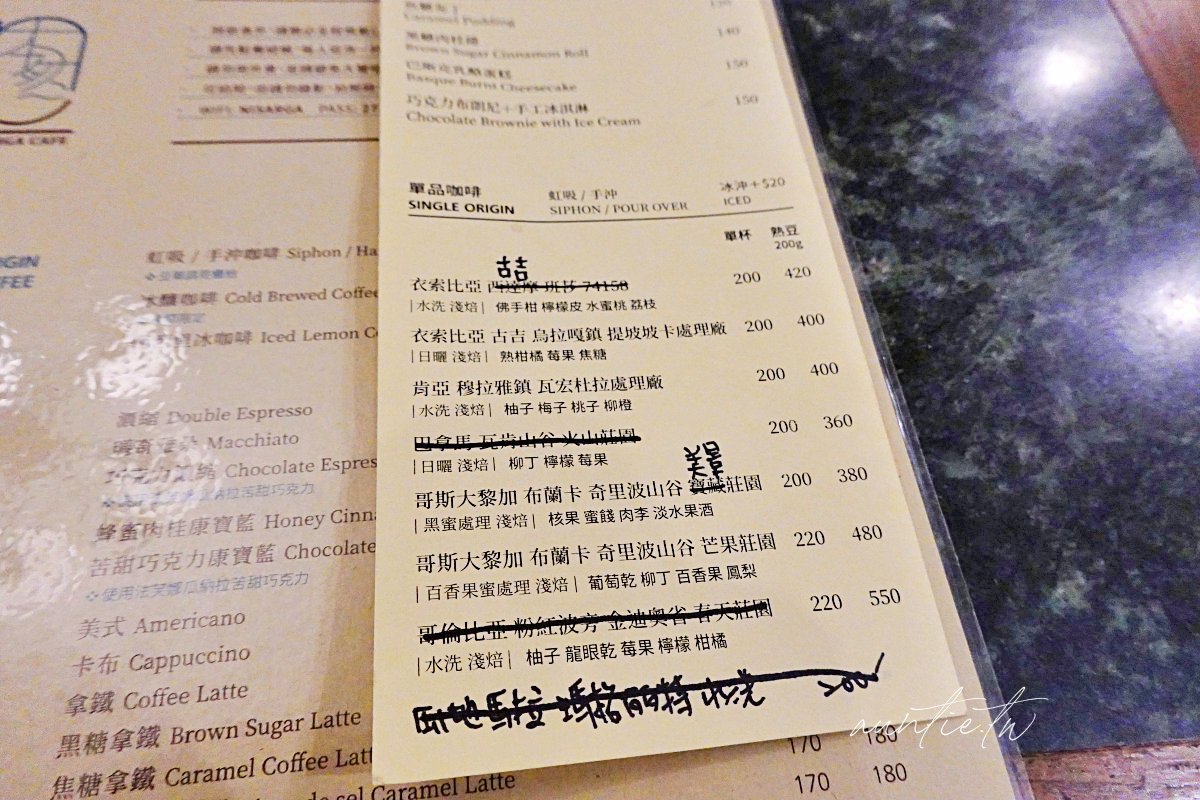 Caramel Pudding
黑糖肉桂捲 140
Brown Sugar Cinnamon Roll
巴斯克乳酪蛋糕 150
Basque Burnt Cheesecake
巧克力布朗尼+手工冰淇淋 150
Chocolate Brownie with Ice Cream
單品咖啡 虹吸 / 手沖 冰沖+$20
SINGLE ORIGIN SIPHON / POUR OVER ICED
單杯 熟豆
200g
喆
衣索比亞 西達摩 班莎 74158 200 420
|水洗 淺焙| 佛手柑 檸檬皮 水蜜桃 荔枝
衣索比亞 古吉 烏拉嘎鎮 提坡坡卡處理廠 200 400
|日曬 淺焙| 熟柑橘 莓果 焦糖
肯亞 穆拉雅鎮 瓦宏杜拉處理廠 200 400
|水洗 淺焙| 柚子 梅子 桃子 柳橙
巴拿馬 瓦肯山谷 火山莊園 200 360
|日曬 淺焙| 柳丁 檸檬 莓果
美景
哥斯大黎加 布蘭卡 奇里波山谷 寶藏莊園 200 380
|黑蜜處理 淺焙| 核果 蜜餞 肉李 淡水果酒
哥斯大黎加 布蘭卡 奇里波山谷 芒果莊園 220 480
|百香果蜜處理 淺焙| 葡萄乾 柳丁 百香果 鳳梨
哥倫比亞 粉紅波旁 金迪奧省 春天莊園 220 550
|水洗 淺焙| 柚子 龍眼乾 莓果 檸檬 柑橘
水洗 200
auntie.tw
虹吸 / 手沖咖啡 Siphon / Ha
冰釀咖啡 Cold Brewed Coffee
冰咖啡 Iced Lemon Co
濃縮 Double Espresso
瑪奇朵 Macchiato
巧克力濃縮 Chocolate Espres
蜂蜜肉桂康寶藍 Honey Cinna
苦甜巧克力康寶藍 Chocolate
使用法芙娜瓜納拉苦甜巧克力
美式 Americano
卡布 Cappuccino
拿鐵 Coffee Latte
黑糖拿鐵 Brown Sugar Latte
焦糖拿鐵 Caramel Coffee Latt 170 180
de sel Caramel Latte 170 180